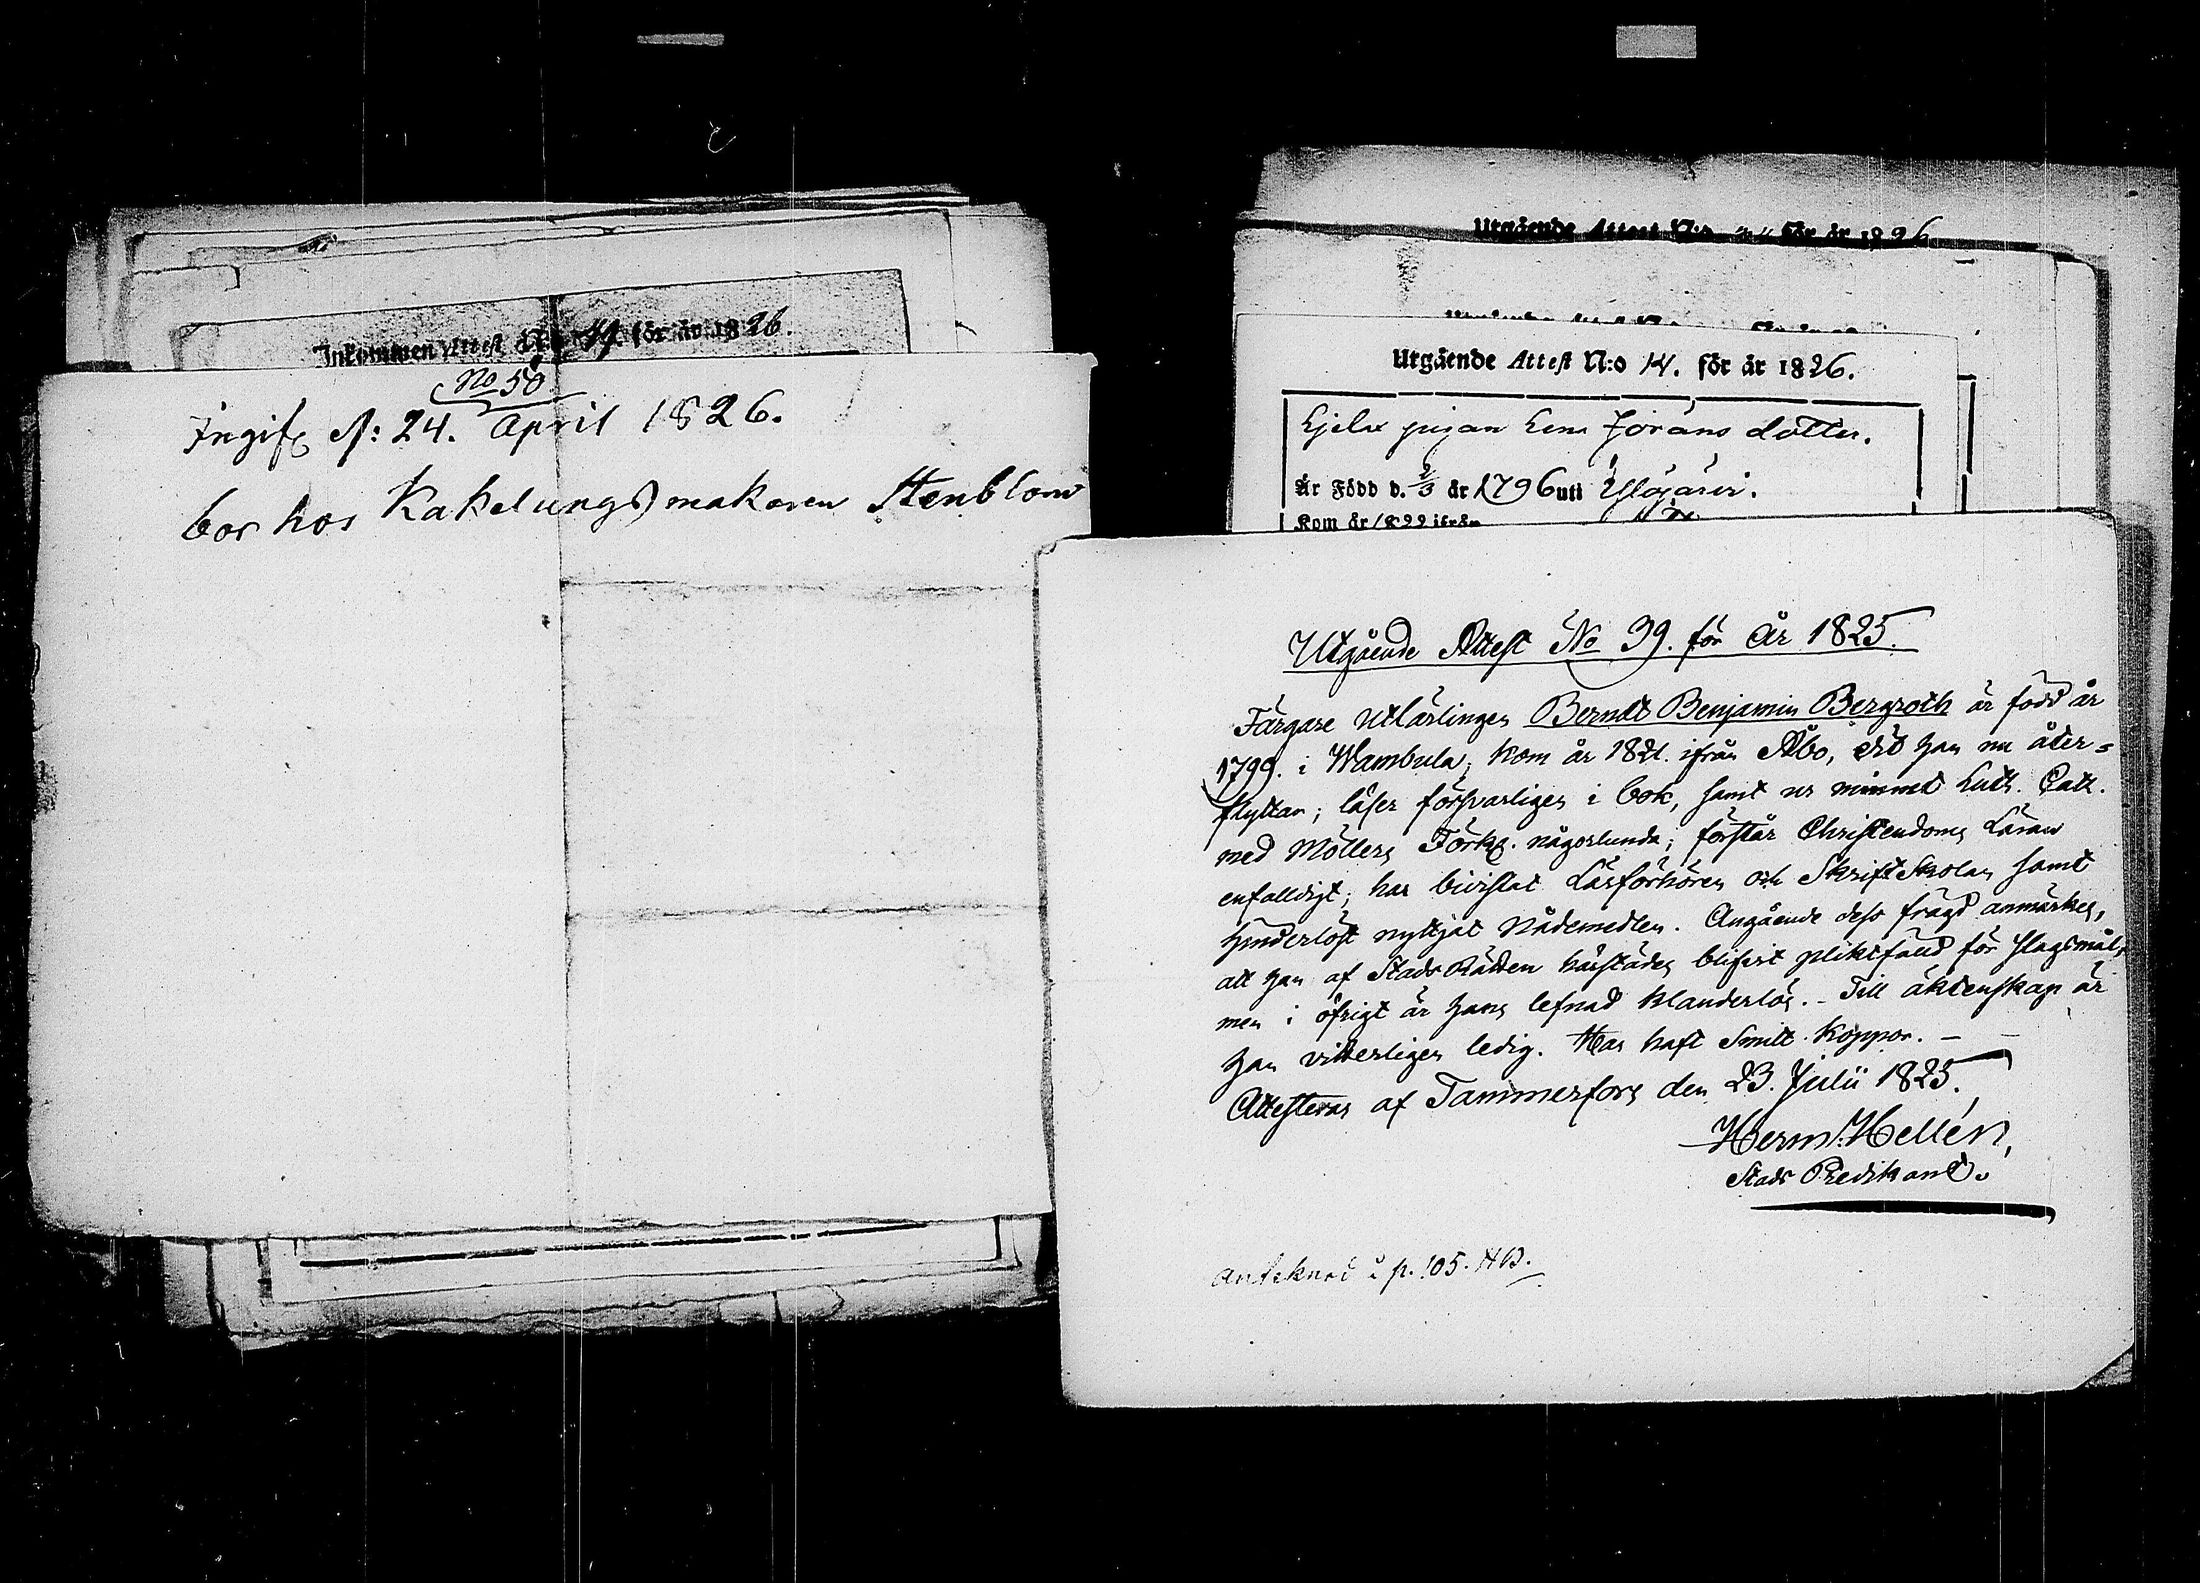 Inkommen Attest N:o 49. för år 1826.
No 50
Ingifv. d: 24. April 1826.
bor hos Kakelungsmakaren Stenblom
Utgående Attest N:o för år 1826
Utgående Attest N:o 14. för år 1826.
pigan Lena Jörans dotter.
Är Född d. 2/3 år 1796 uti Ylöjärvi.
Kom år 1822 ifrån
Utgående Attest No 39. för år 1825.
Färgare Utlärlingen Berndt Benjamin Bergroth är född år
1799. i Wambula, kom år 1821. ifrån Åbo, dit han nu åter-
flyttar; läser försvarligen i bok, samt ur minnet Luth. Cat.
med Möllers Förkl. någorlunda; förstår Christendoms Läran
enfalldigt; har bivistat Läsförhören och SkriftSkolan samt
hinderlöst nyttjat Nådemedlen. Angående dess frägd anmärkes,
att han af StadsRätten härstädes blifvit pliktfäld för slagsmål,
men i öfrigt är hans lefnad klanderlös. - Till äktenskap är
han vitterligen ledig. Har haft Smitt-koppor. -
Attesteras af Tammerfors den 23. Julii 1825.
Herm. Hellén,
Stads Predikant.
Anteknad i p. 105. HB.